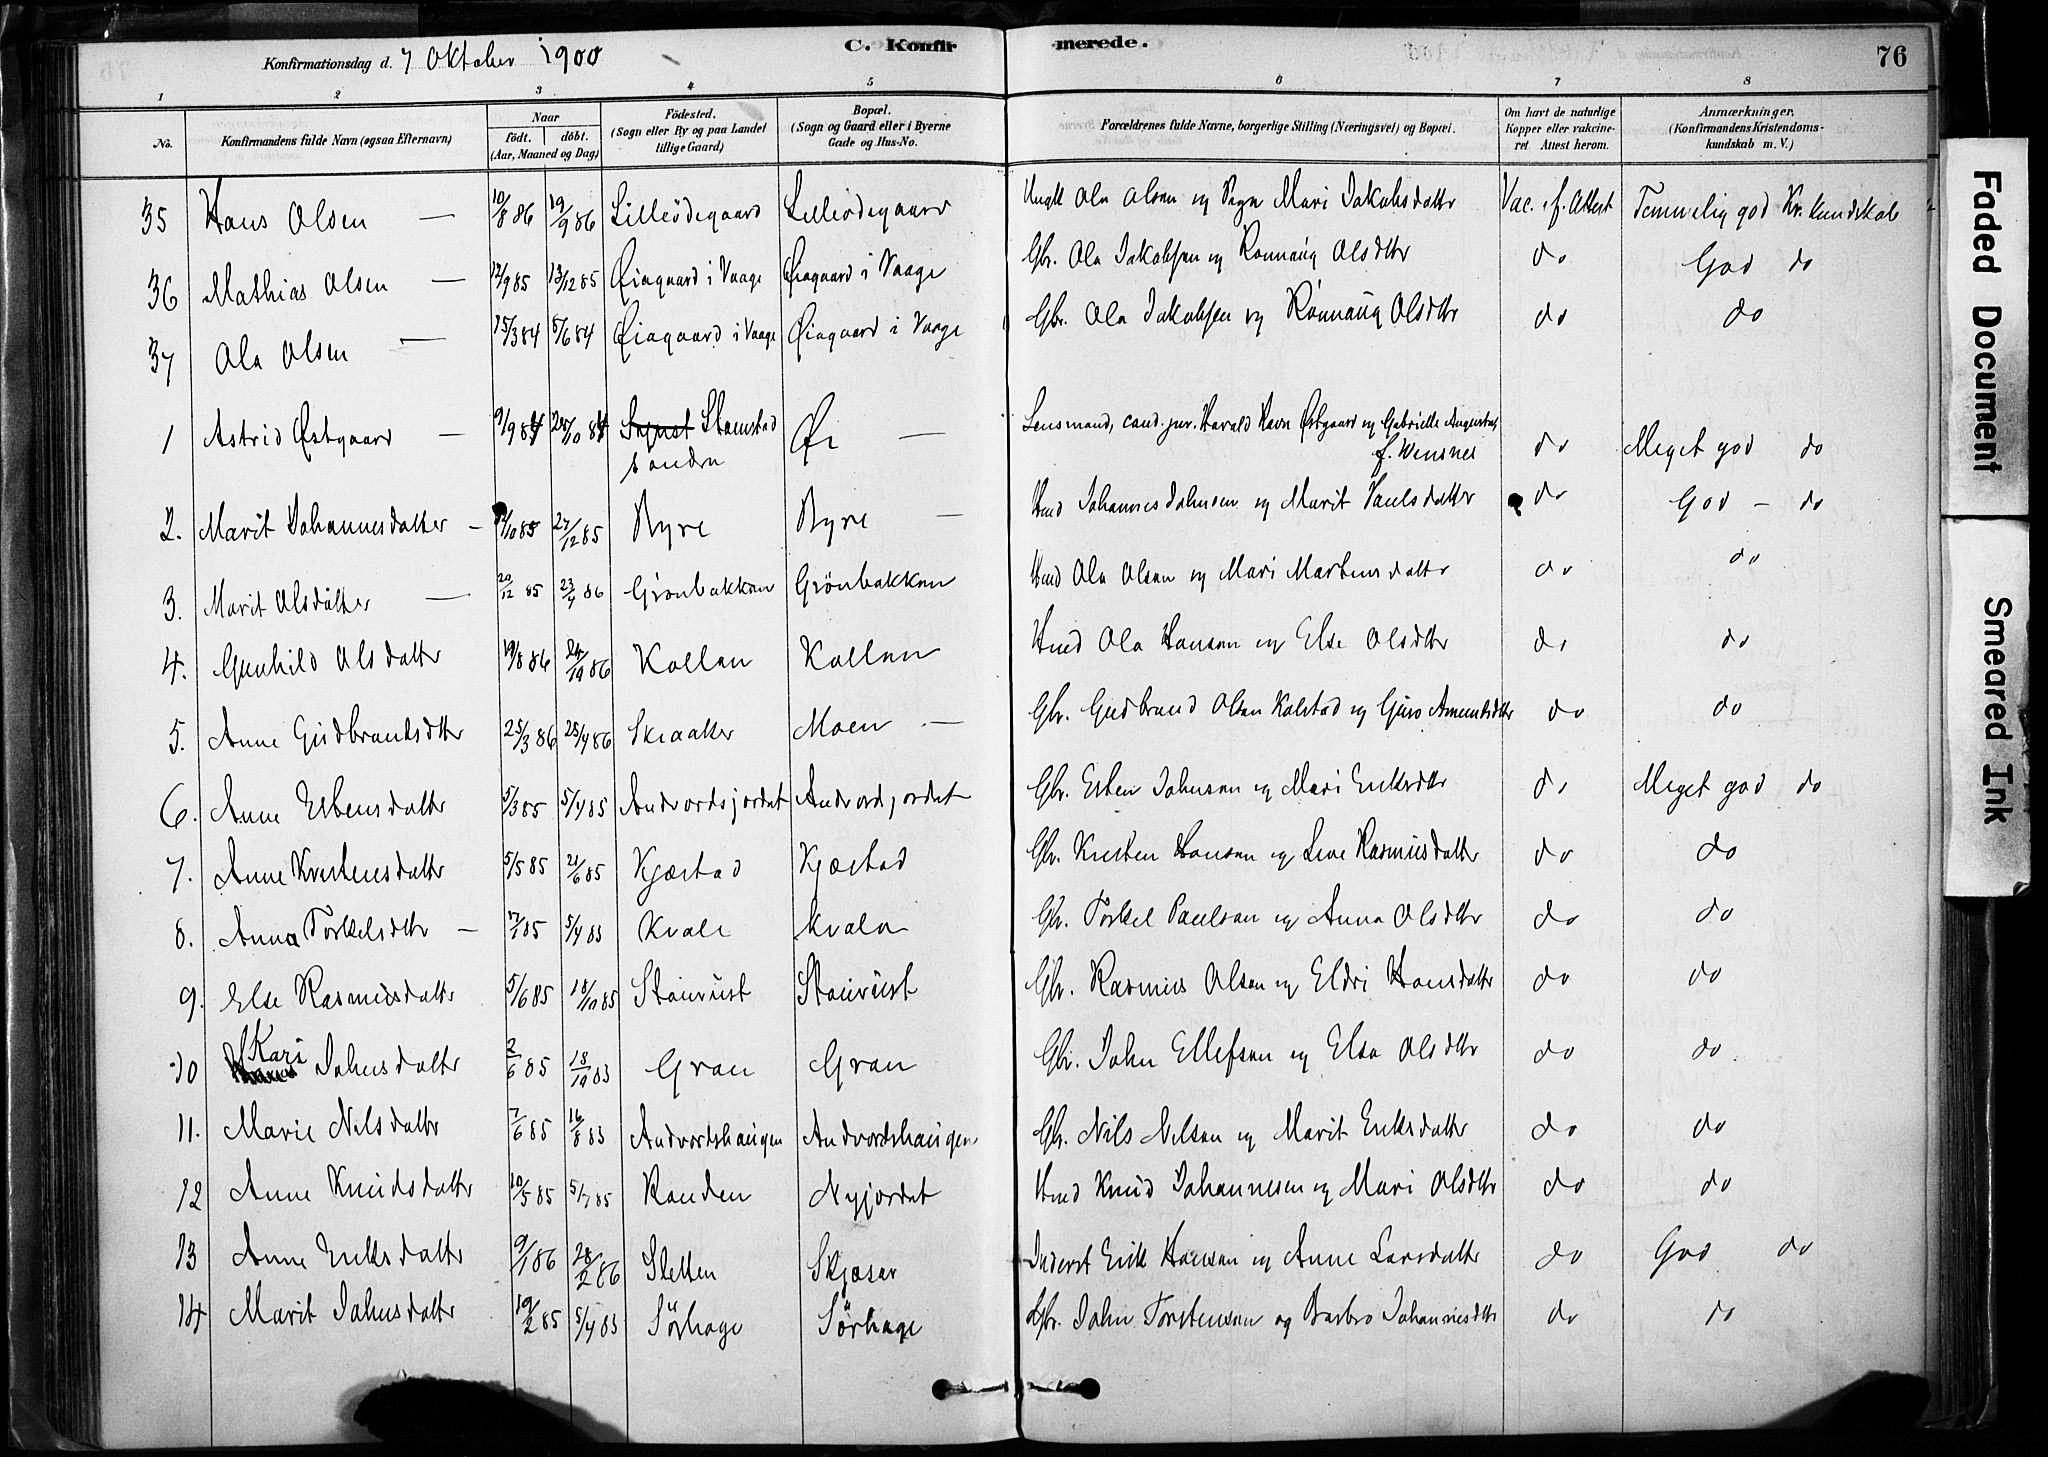 Konfirmationsdag d. 7 Oktober 1900 C. Konfirmerede. 76
1 2 3 4 5 6 7 8
No. Konfirmandens fulde Navn (ogsaa Efternavn) Naar födt. döbt. (Aar, Maaned og Dag) Födested. (Sogn eller By og paa Landet tillige Gaard) Bopæl. (Sogn og Gaard eller i Byerne Gade og Hus-No. Forældrenes fulde Navne, borgerlige Stilling (Næringsvei) og Bopæl. Om havt de naturlige Kopper eller vakcineret Attest herom. Anmærkninger. (Konfirmandens Kristendomskundskab m. V.)
35 Hans Olsen — 10/8 86 19/9 86 Lilleödegaard Lilleödegaard Ola Olsen og Mari Jakobsdatter Vac. f. Attest Temmelig god Kr. kundskab
36 Mathias Olsen — 12/9 85 13/12 85 Øiagaard i Vaage Øiagaard i Vaage Gbr. Ola Jakobsen og Rönnaug Olsdtr do God do
37 Ola Olsen — 15/3 84 5/6 84 Øiagaard i Vaage Øiagaard i Vaage Gbr. Ola Jakobsen og Rönnaug Olsdtr do do
1 Astrid Østgaard — Stamstad söndre Øi — Lensmand, cand. jur. Harald Havn Østgaard og Gabrielle Augusta f. Wensnes do Meget god do
2. Marit Johannesdatter — 27/12 85 Byre Byre — Hmd Johannes Johnsen og Marit Paulsdatter do God — do
3. Marit Olsdatter — 20/12 85 23/4 86 Grönbakken Grönbakken Hmd Ola Olsen og Mari Martensdatter do do
4. Gunhild Olsdatter 19/8 86 24/10 86 Kollen Kollen Hmd Ola Hansen og Else Olsdtr do do
5. Anne Gudbrandsdtr 25/3 86 25/4 86 Skiaaker Moen — Gbr. Gudbrand Olsen Kolstad og Guro Amundsdtr do do
6. Anne Estensdatter 5/3 85 5/4 85 Andvordsjordet Andvordjordet Gbr. Esten Johnsen og Mari Eriksdtr do Meget god do
7. Anne Kristensdatter 5/5 85 21/6 85 Kjæstad Kjæstad Gbr. Kristen Hansen og Live Rasmusdatter do do
8. Anna Torkelsdtr — 5/4 85 Kvale Kvale Gbr. Torkel Paulsen og Anna Olsdtr do do
9. Else Rasmusdatter 5/6 85 18/10 85 Staurust Staurust Gbr. Rasmus Olsen og Eldri Hansdatter do do
10 Kari Johnsdatter 2/6 85 18/10 85 Gran Gran Gbr. John Ellefsen og Else Olsdtr do do
11. Marie Nilsdatter 7/6 85 16/8 85 Andvordshaugen Andvordshaugen Gbr. Nils Nilsen og Marit Eriksdatter do do
12 Anne Knudsdatter 10/5 85 5/7 85 Randen Nyjordet Hmd Knud Johannesen og Mari Olsdtr do do
13 Anne Eriksdatter 9/1 86 28/2 86 Sletten Skjæsar Inderst Erik Hansen og Anne Larsdatter do God do
14 Marit Johnsdatter 19/2 85 5/4 85 Sörhage Sörhage Gbr. John Torstensen og Barbro Johannesdtr do do
Faded Document
Smeared Ink